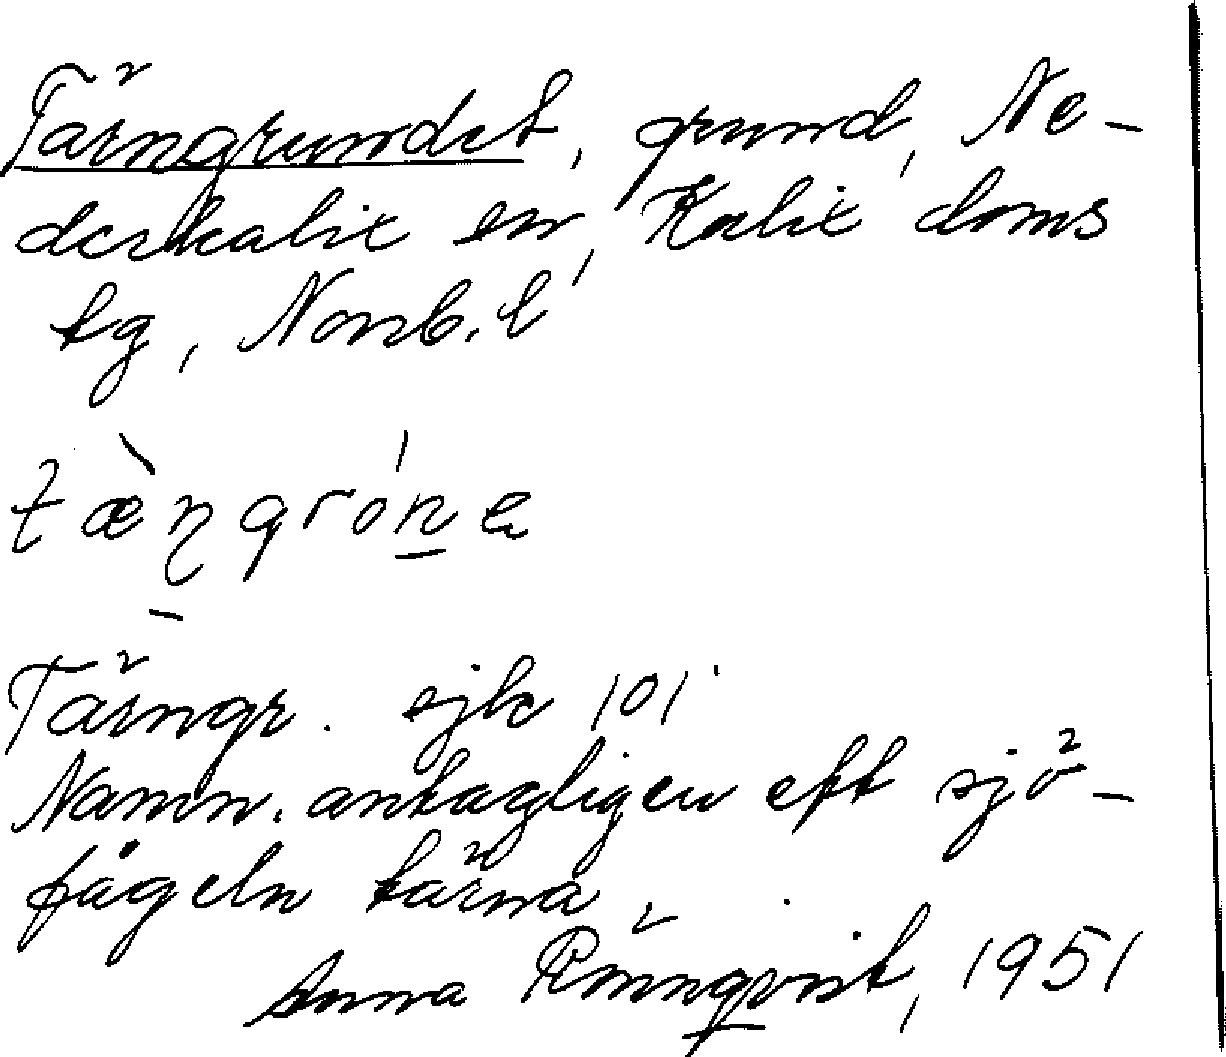 Tärngrundet, grund, Ne-
derkalix sn, Kalix doms
tg, Norrb. l
tæ̀ŋgróna
Tärngr. sjk 101
Namn. antagligen eft sjö-
fågeln tärna,
Anna Rönnqvist, 1951